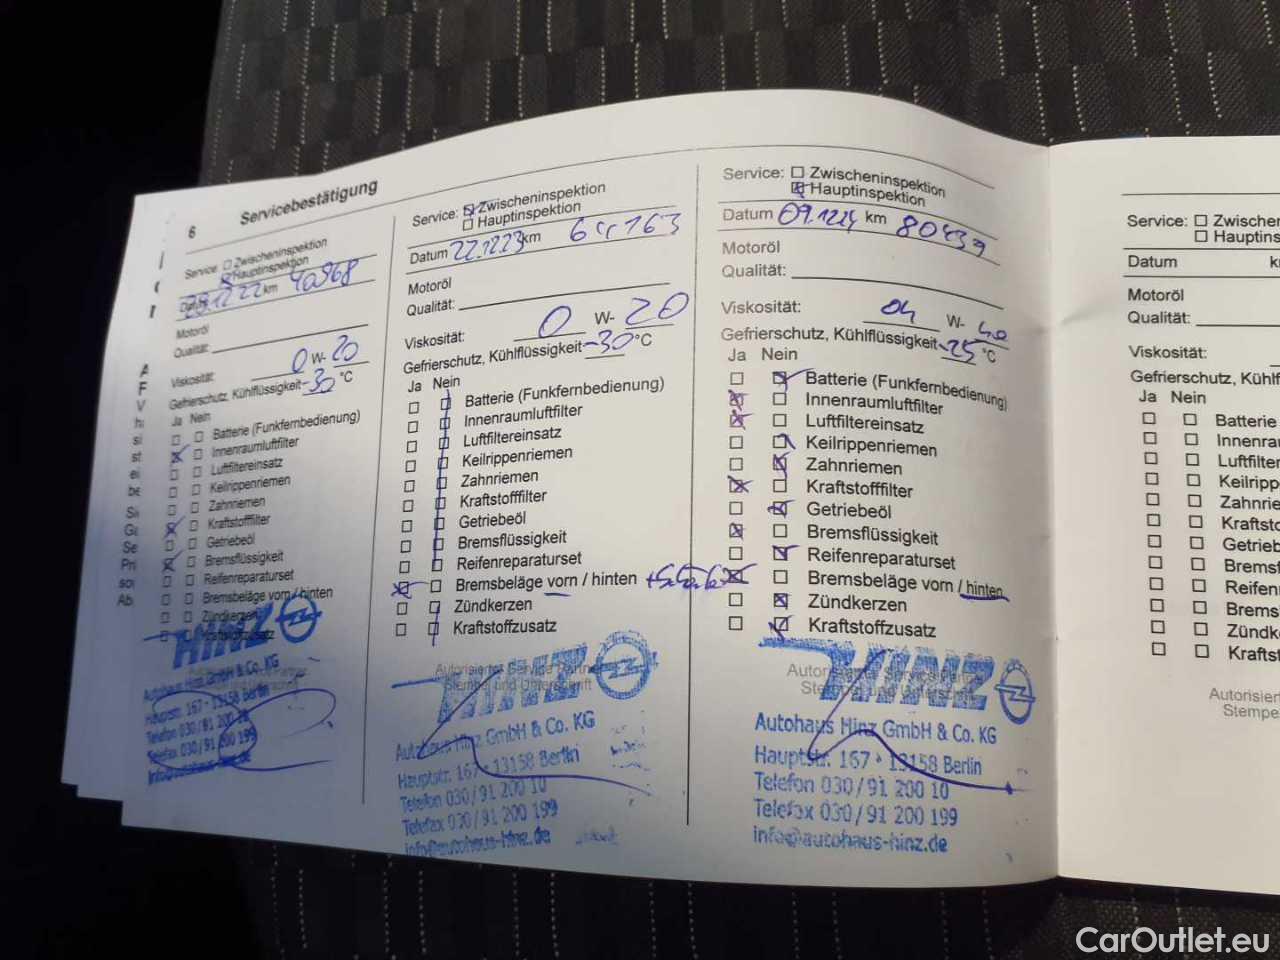 6 Servicebestätigung
Service: Zwischeninspektion
Hauptinspektion
Datum 28.12.22 km 40968
Motoröl
Qualität:
Viskosität: 0 W- 20
Gefrierschutz, Kühlflüssigkeit -30 °C
Ja Nein
Batterie (Funkfernbedienung)
Innenraumluftfilter
Luftfiltereinsatz
Keilrippenriemen
Zahnriemen
Kraftstofffilter
Getriebeöl
Bremsflüssigkeit
Reifenreparaturset
Bremsbeläge vorn / hinten
Zündkerzen
Kraftstoffzusatz
HINZ
Autohaus Hinz GmbH & Co. KG
Hauptstr. 167 · 13158 Berlin
Telefon 030/91 200 10
Telefax 030/91 200 199
info@autohaus-hinz.de
Service: Zwischeninspektion
Hauptinspektion
Datum 22.12.23 km 64163
Motoröl
Qualität:
Viskosität: 0 W- 20
Gefrierschutz, Kühlflüssigkeit -30 °C
Ja Nein
Batterie (Funkfernbedienung)
Innenraumluftfilter
Luftfiltereinsatz
Keilrippenriemen
Zahnriemen
Kraftstofffilter
Getriebeöl
Bremsflüssigkeit
Reifenreparaturset
Bremsbeläge vorn / hinten
Zündkerzen
Kraftstoffzusatz
Autorisierter Service Partner
Stempel und Unterschrift
HINZ
Autohaus Hinz GmbH & Co. KG
Hauptstr. 167 · 13158 Berlin
Telefon 030/91 200 10
Telefax 030/91 200 199
info@autohaus-hinz.de
Service: Zwischeninspektion
Hauptinspektion
Datum 09.12.24 km 80439
Motoröl
Qualität:
Viskosität: W-
Gefrierschutz, Kühlflüssigkeit -25 °C
Ja Nein
Batterie (Funkfernbedienung)
Innenraumluftfilter
Luftfiltereinsatz
Keilrippenriemen
Zahnriemen
Kraftstofffilter
Getriebeöl
Bremsflüssigkeit
Reifenreparaturset
Bremsbeläge vorn / hinten
Zündkerzen
Kraftstoffzusatz
Autorisierter Service Partner
Stempel und Unterschrift
HINZ
Autohaus Hinz GmbH & Co. KG
Hauptstr. 167 · 13158 Berlin
Telefon 030/91 200 10
Telefax 030/91 200 199
info@autohaus-hinz.de
Service: Zwische
Hauptins
Datum k
Motoröl
Qualität:
Viskosität:
Gefrierschutz, Kühlf
Ja Nein
Batterie
Innenra
Luftfilter
Keilripp
Zahnrie
Kraftsto
Getrieb
Bremsf
Reifen
Brems
Zündk
Krafts
Autorisiert
Stempe
CarOutlet.eu